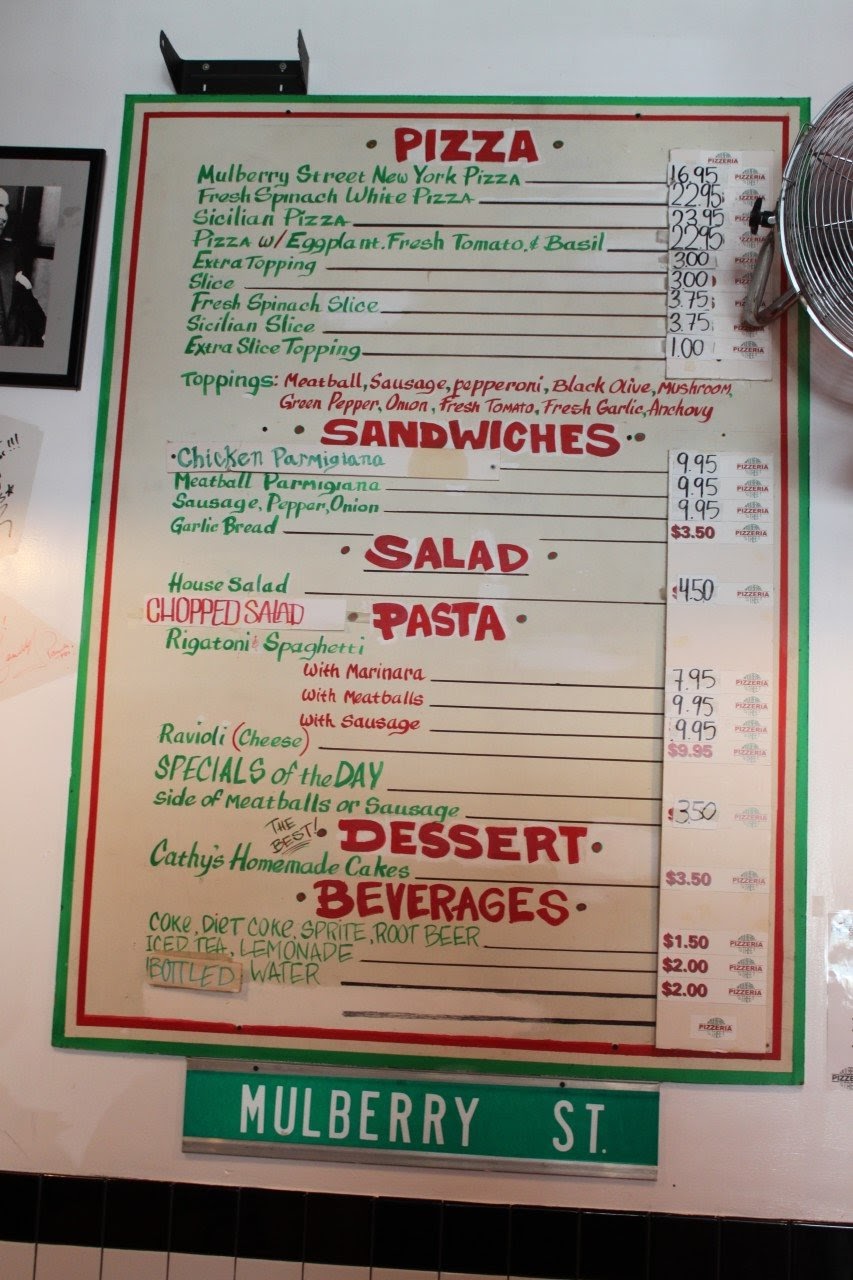 PIZZA
PIZZERIA
Mulberry Street New York Pizza 16.95 PIZZERIA
Fresh Spinach White Pizza 22.95
Sicilian Pizza 23.95
Pizza w/ Eggplant. Fresh Tomato. & Basil 22.95
Extra Topping 3.00
Slice 3.00
Fresh Spinach Slice 3.75
Sicilian Slice 3.75
Extra Slice Topping 1.00 PIZZERIA
Toppings: Meatball, Sausage, pepperoni, Black Olive, Mushroom,
Green Pepper, Onion, Fresh Tomato, Fresh Garlic, Anchovy
SANDWICHES
Chicken Parmigiana 9.95 PIZZERIA
Meatball Parmigiana 9.95 PIZZERIA
Sausage, Pepper, Onion 9.95 PIZZERIA
Garlic Bread $3.50 PIZZERIA
SALAD
House Salad 4.50 PIZZERIA
CHOPPED SALAD
PASTA
Rigatoni & Spaghetti
With Marinara 7.95 PIZZERIA
With Meatballs 9.95 PIZZERIA
With Sausage 9.95 PIZZERIA
Ravioli (Cheese) $9.95 PIZZERIA
SPECIALS of the DAY
Side of Meatballs or Sausage 3.50 PIZZERIA
THE BEST!
DESSERT
Cathy's Homemade Cakes $3.50 PIZZERIA
BEVERAGES
COKE, DIET COKE, SPRITE, ROOT BEER $1.50 PIZZERIA
ICED TEA, LEMONADE $2.00 PIZZERIA
BOTTLED WATER $2.00 PIZZERIA
PIZZERIA
MULBERRY ST.